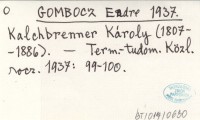 O GOMBOCZ Endre 1937.
Kalchbrenner Károly (1807-
-1886). — Term.-tudom. Közl.
rocz. 1937: 99-100.